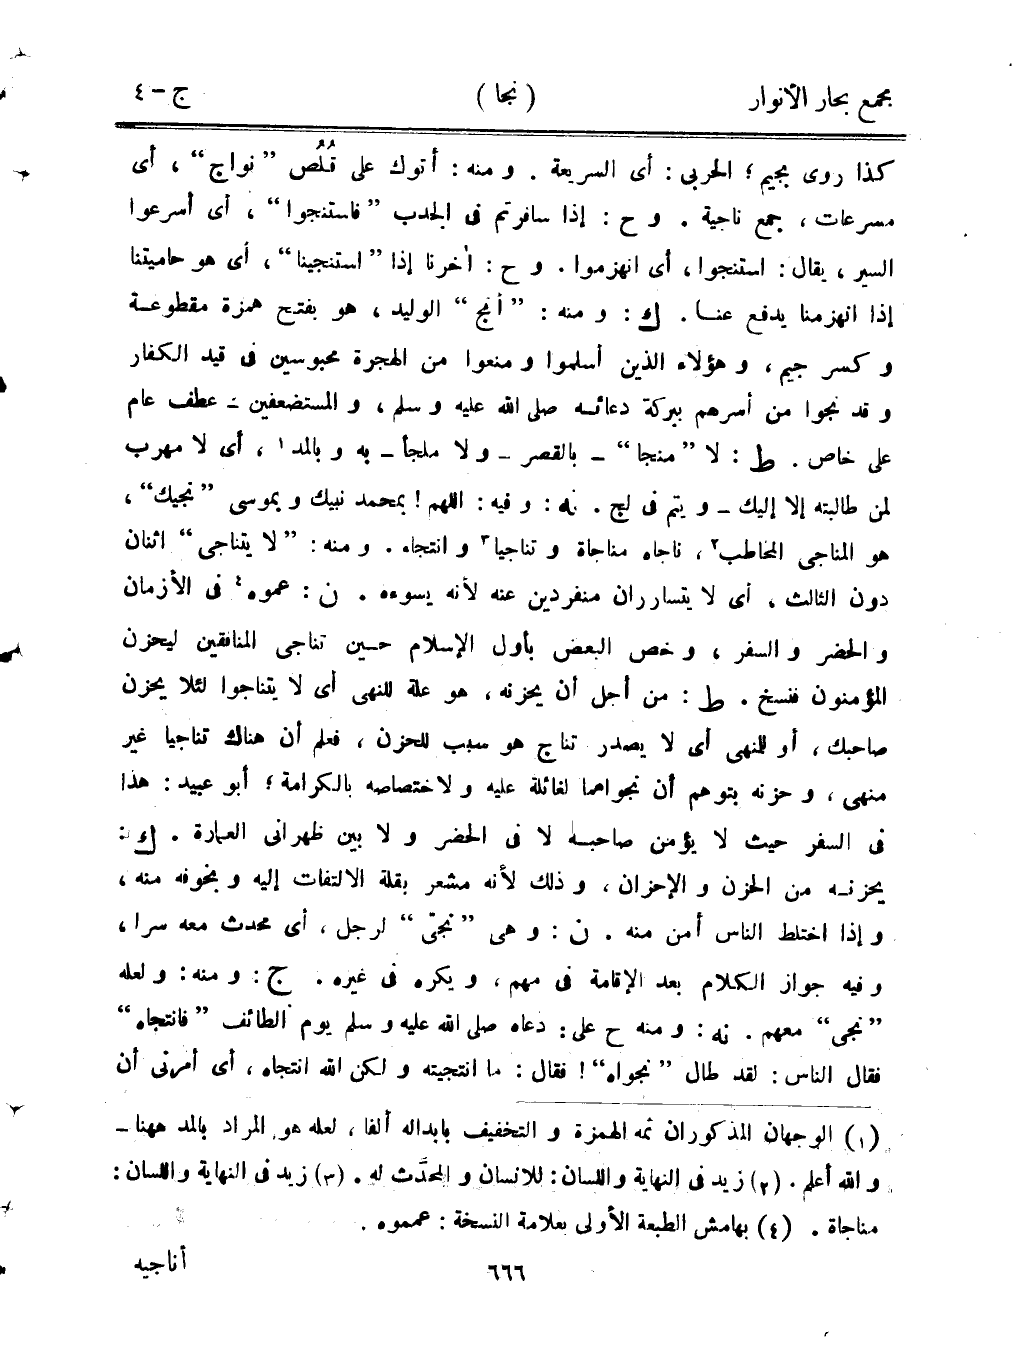 مجمع بحار الأنوار ( نجا ) ج - ٤
كذا روى بجيم ؛ الحربى : أى السريعة . و منه : أتوك على قُلُص ” نواج “ ، أى
مسرعات ، جمع ناجية . و ح : إذا سافرتم فى الجدب ” فاستنجوا “ ، أى أسرعوا
السير ، يقال : استنجوا ، أى انهزموا . و ح : أخرنا إذا ” استنجينا “ ، أى هو حاميتنا
إذا انهزمنا يدفع عنا . ك : و منه : ” أنج “ الوليد ، هو بفتح همزة مقطوعة
و كسر جيم ، و هؤلاء الذين أسلموا و منعوا من الهجرة محبوسين فى قيد الكفار
و قد نجوا من أسرهم ببركة دعائه صلى الله عليه و سلم ، و المستضعفين - عطف عام
على خاص . ط : لا ” منجا “ - بالقصر - و لا ملجأ - به و بالمد ١ ، أى لا مهرب
لمن طالبته إلا إليك - و يتم فى لج . نه : و فيه : اللهم ! بمحمد نبيك و بموسى ” نجيك “ ،
هو المناجى المخاطب ٢ ، ناجاه مناجاة و تناجيا ٣ و انتجاء . و منه : ” لا يتناجى “ اثنان
دون الثالث ، أى لا يتسارران منفردين عنه لأنه يسوءه . ن : عموه ٤ فى الأزمان
و الحضر و السفر ، و خص البعض بأول الإسلام حين تناجى المنافقين ليحزن
المؤمنون فنسخ . ط : من أجل أن يحزنه ، هو علة للنهى أى لا يتناجوا لئلا يحزن
صاحبك ، أو للنهى أى لا يصدر تناج هو سبب للحزن ، فعلم أن هناك تناجيا غير
منهى ، و حزنه بتوهم أن نجواهما لغائلة عليه و لاختصاصه بالكرامة ؛ أبو عبيد : هذا
فى السفر حيث لا يؤمن صاحبه لا فى الحضر و لا بين ظهرانى العمارة . ك :
يحزنه من الحزن و الإحزان ، و ذلك لأنه مشعر بقلة الالتفات إليه و بخوفه منه ،
و إذا اختلط الناس أمن منه . ن : و هى ” نجىّ “ لرجل ، أى محدث معه سرا ،
و فيه جواز الكلام بعد الإقامة فى مهم ، و يكره فى غيره . ج : و منه : و لعله
” نجى “ معهم . نه : و منه ح على : دعاه صلى الله عليه و سلم يوم الطائف ” فانتجاه “
فقال الناس : لقد طال ” نجواه “ ! فقال : ما انتجيته و لكن الله انتجاه ، أى أمرنى أن
(١) الوجهان المذكوران ثمه الهمزة و التخفيف بابداله ألفا ، لعله هو المراد بالمد ههنا -
و الله أعلم . (٢) زيد فى النهاية واللسان : للانسان و المحدَّث له . (٣) زيد فى النهاية واللسان :
مناجاة . (٤) بهامش الطبعة الأولى بعلامة النسخة : عمموه .
٦٦٦ أناجيه